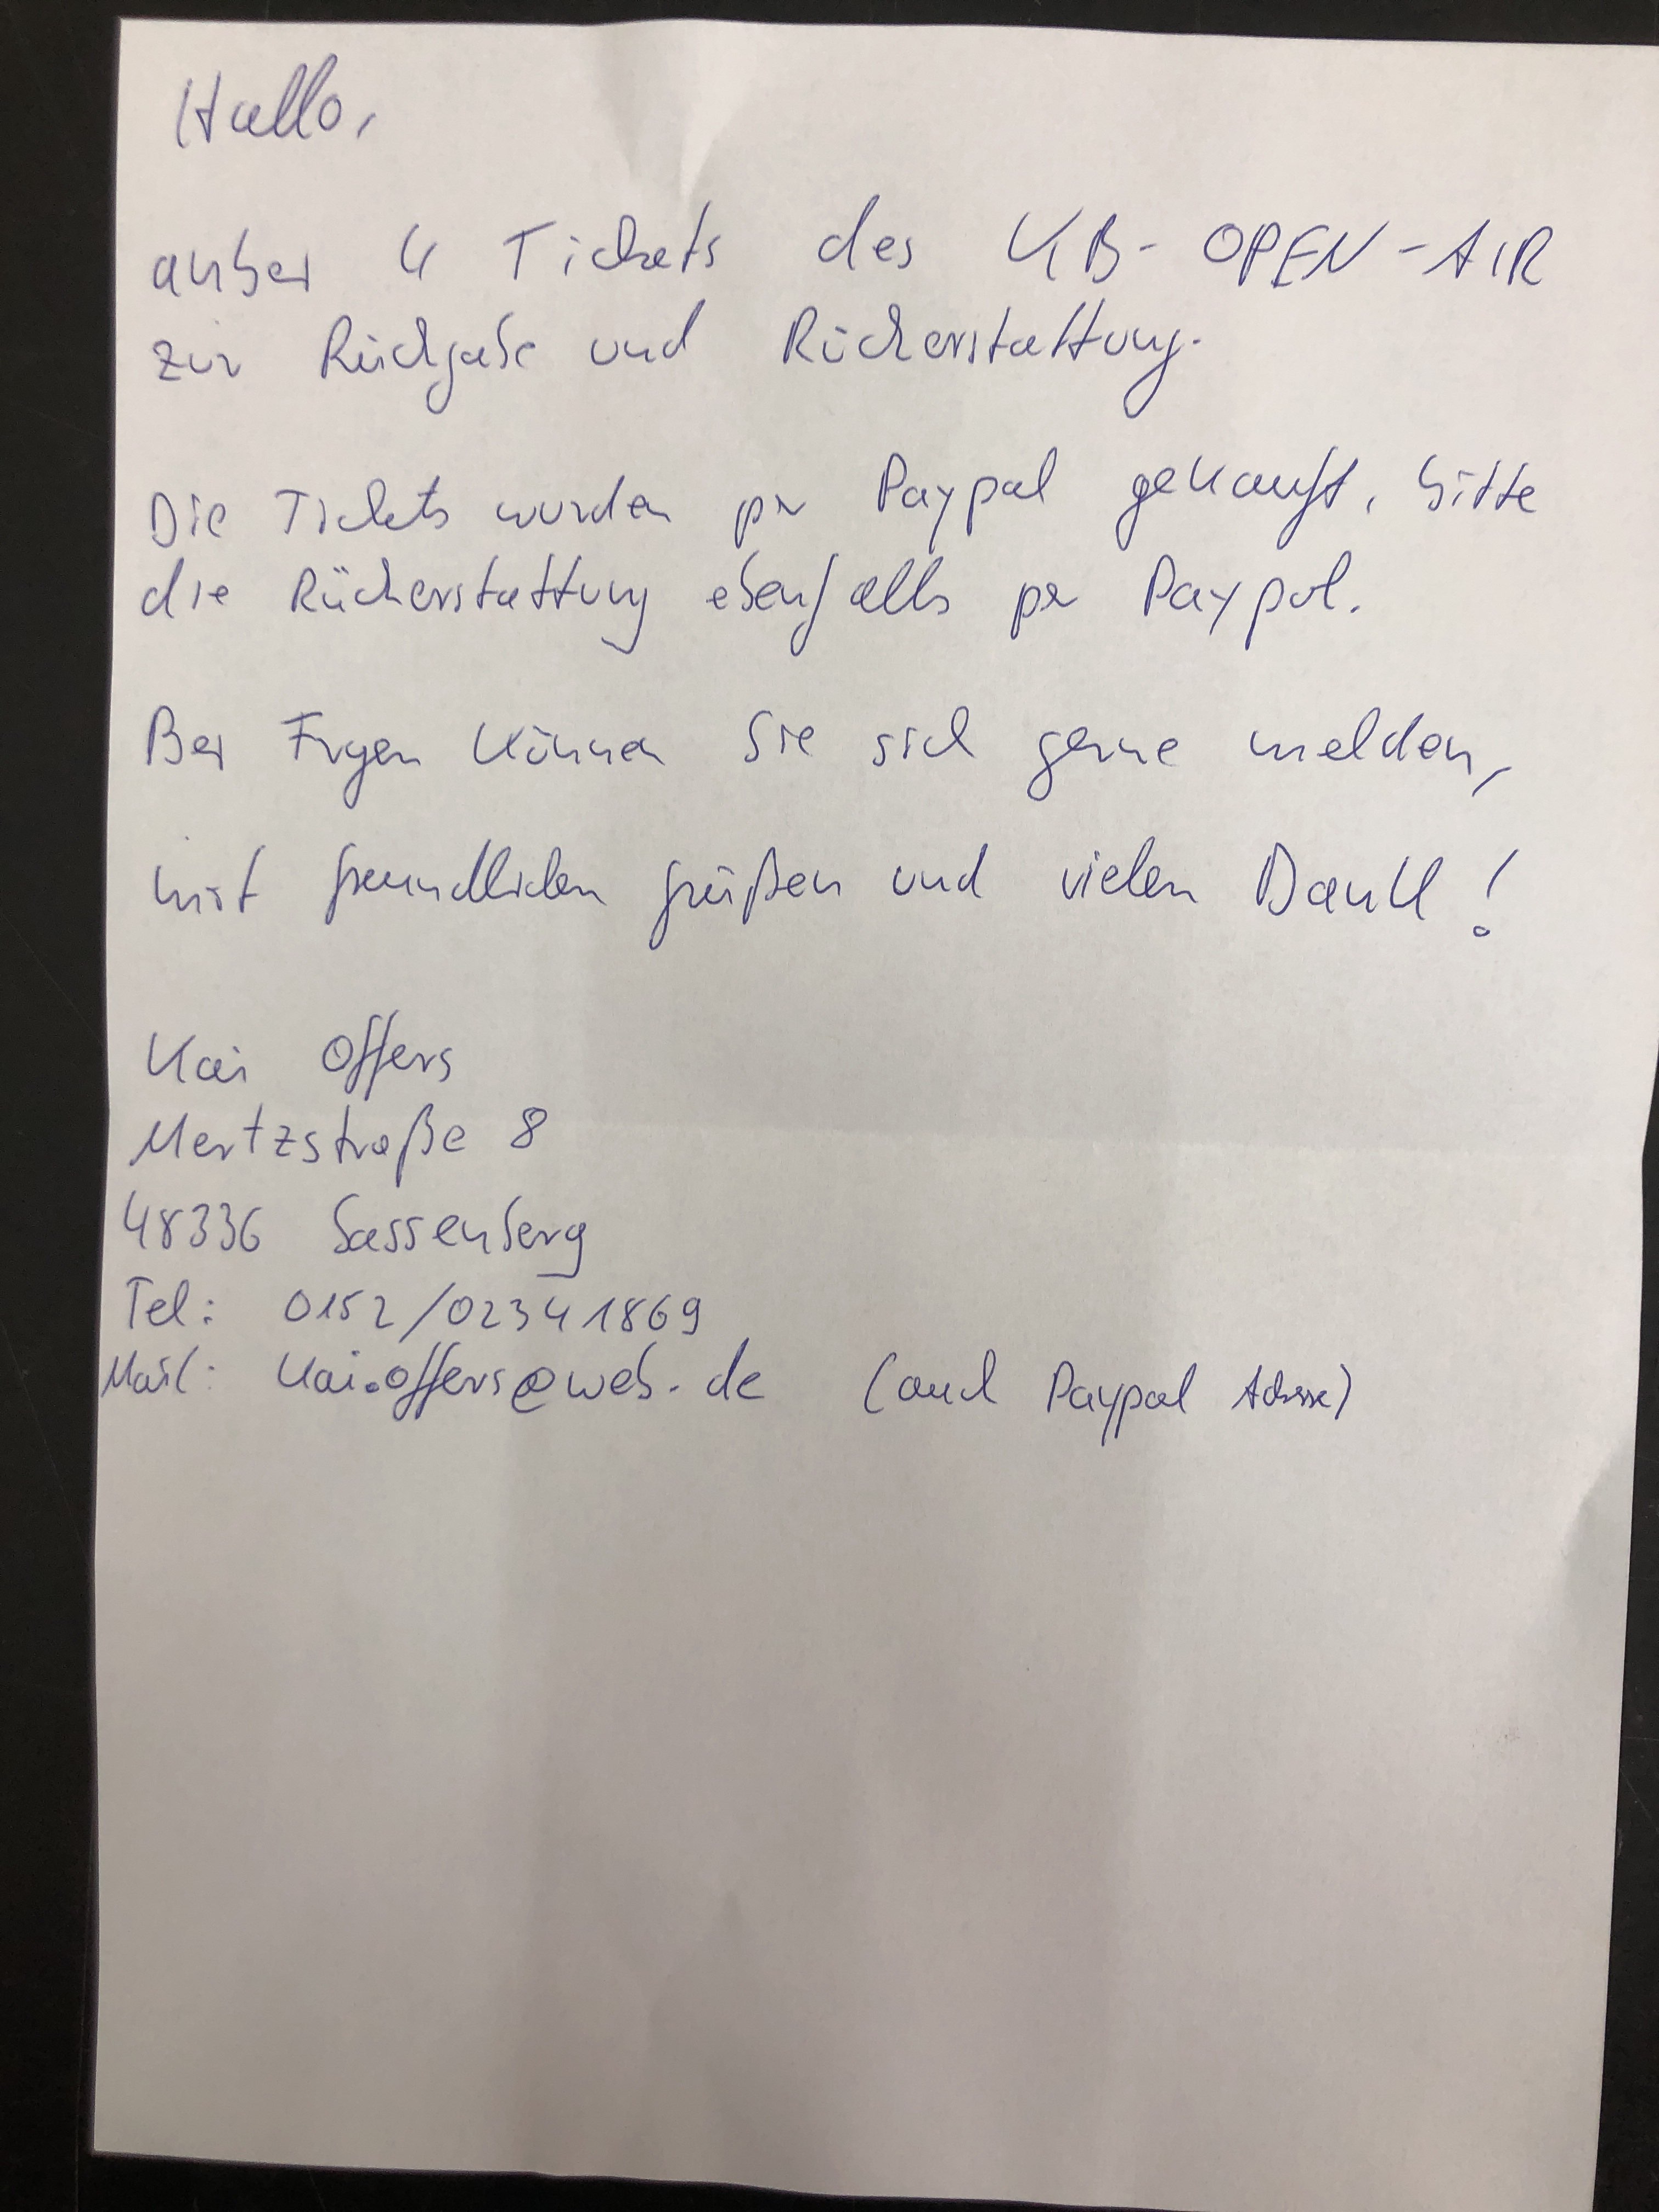 Hallo,
anbei 4 Tickets des KB-OPEN-AIR
zur Rückgabe und Rückerstattung.
Die Tickets wurden per Paypal gekauft, bitte
die Rückerstattung ebenfalls per Paypal.
Bei Fragen können Sie sich gerne melden,
mit freundlichen Grüßen und vielen Dank!
Kai Offers
Mertzstraße 8
48336 Sassenberg
Tel: 0152/02341869
Mail: kai.offers@web.de (auch Paypal Adresse)